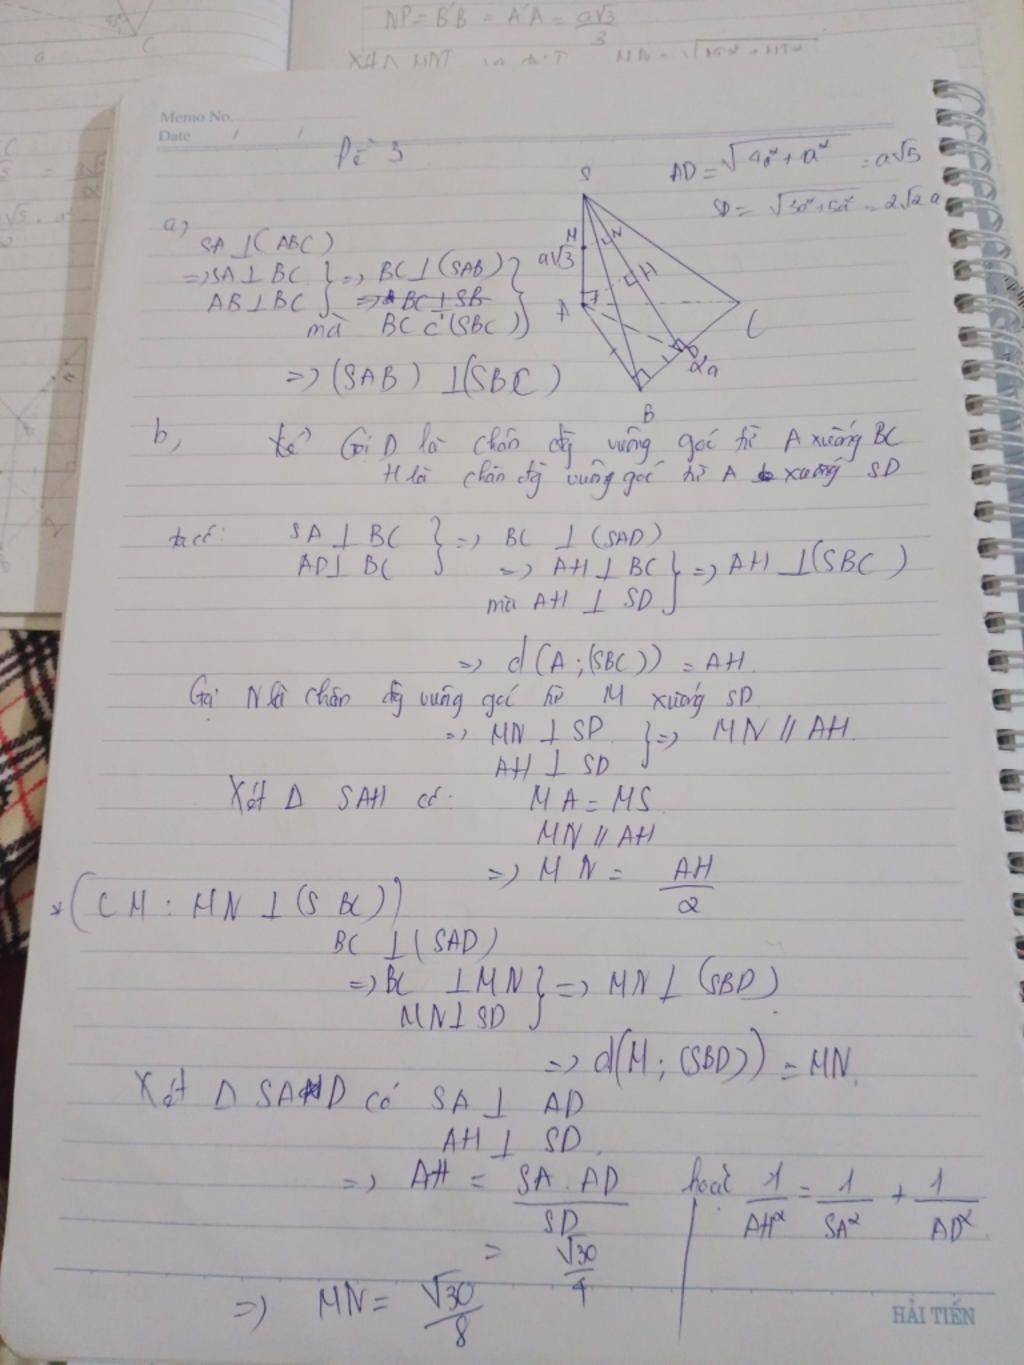 NP = B'B = A'A = a√3/3
Memo No.
Date / /
Đề 3
AD = √(4a² + a²) = a√5
SD = √(3a² + 5a²) = 2√2 a
S
M
N
a√3
H
A
C
D
2a
B
a,
SA ⊥ (ABC)
=> SA ⊥ BC } => BC ⊥ (SAB) }
AB ⊥ BC } => BC ⊥ SB
mà BC ⊂ (SBC) }
=> (SAB) ⊥ (SBC)
b, Kẻ Gọi D là chân đg vuông góc từ A xuống BC
H là chân đg vuông góc từ A xuống SD
ta có: SA ⊥ BC } => BC ⊥ (SAD)
AD ⊥ BC } => AH ⊥ BC } => AH ⊥ (SBC)
mà AH ⊥ SD }
=> d(A; (SBC)) = AH.
Gọi N là chân đg vuông góc từ M xuống SD
=> MN ⊥ SD } => MN // AH.
AH ⊥ SD }
Xét Δ SAH có: MA = MS
MN // AH
=> MN = AH/2
* (CM: MN ⊥ (SBC))
BC ⊥ (SAD)
=> BC ⊥ MN } => MN ⊥ (SBD)
MN ⊥ SD }
=> d(M; (SBD)) = MN.
Xét Δ SAD có SA ⊥ AD
AH ⊥ SD
=> AH = SA.AD/SD hoặc 1/AH² = 1/SA² + 1/AD²
= √30/4
=> MN = √30/8
HẢI TIẾN